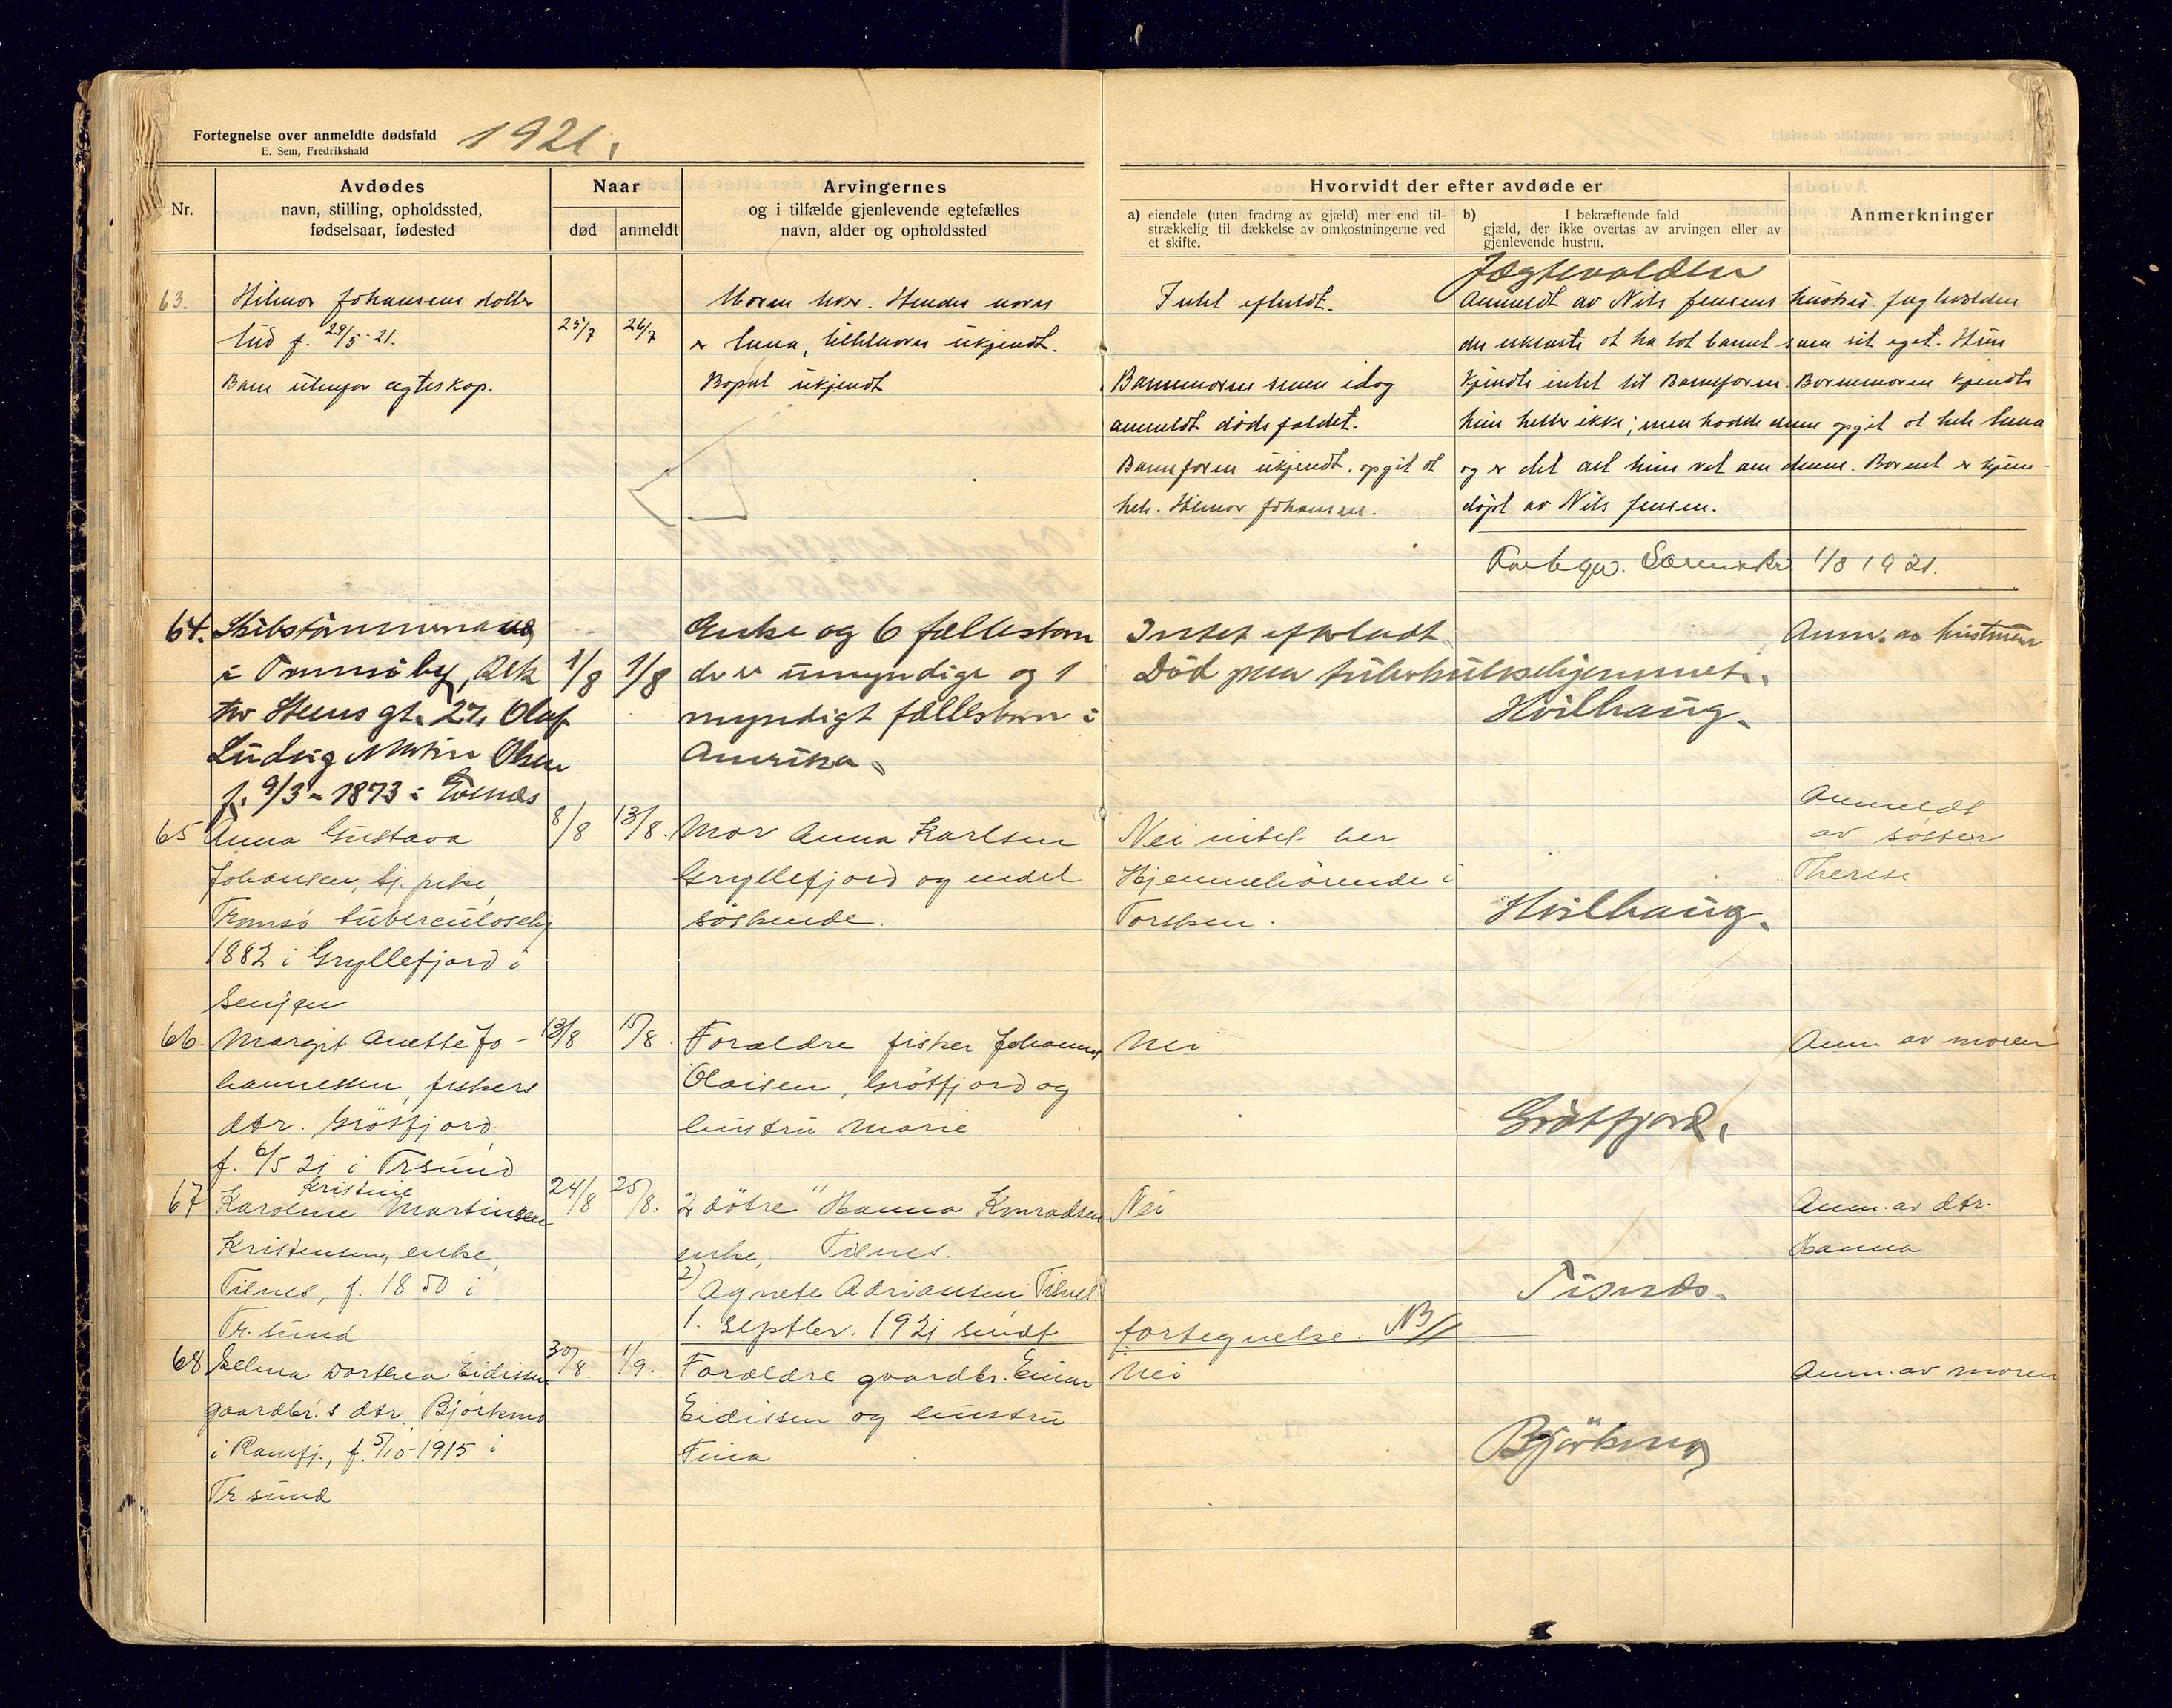 Fortegnelse over anmeldte dødsfald
E. Sem, Fredrikshald
1921.
Nr.
Avdødes
navn, stilling, opholdssted,
fødselsaar, fødested
Naar
død
anmeldt
Arvingernes
og i tilfælde gjenlevende egtefælles
navn, alder og opholdssted
Hvorvidt der efter avdøde er
a) eiendele (uten fradrag av gjæld) mer end til-
strækkelig til dækkelse av omkostningerne ved
et skifte.
b) I bekræftende fald
gjæld, der ikke overtas av arvingen eller av
gjenlevende hustru.
Anmerkninger
63.
Hilmor Johansens datter
f. 29/5-21.
Barn utenfor ægteskap.
25/7
26/7
Moren lever. Hendes navn
er Anna, tilnavn ukjendt.
Bopæl ukjendt
Intet efterladt.
Barnemoren senen idag
anmeldt dødsfaldet.
Barnefaren ukjendt, opgit at
hete. Hilmor Johansen.
Jægtevolden
Anmeldt av Nils Jensens hustru
der erklærte at ha tat barnet som sit eget. Hun
kjendte intet til Barnefaren. Barnemoren kjendte
hun heller ikke; men hadde denne opgit at hete Anna
og er det alt hun vet om denne. Barnet er hjem-
døpt av Nils Jensen.
1/8 1921.
64. Skibstømmermand
i Tromsøby,
Steens gt. 27, Olaf
Ludvig Martin Olsen
f. 9/3-1873 i Evenes
1/8
1/8
Enke og 6 fællesbarn
der er umyndige og 1
myndigt fællesbarn i
Amerika.
Intet efterladt
Død paa tuberkulosehjemmet.
Hvilhaug.
Anm. av hustruen
65 Anna Gustava
Johansen, tj. pike,
Tromsø tuberculosehj
1882 i Gryllefjord i
Senjen
8/8
13/8.
Mor Anna Karlsen
Gryllefjord og endel
søskende.
Nei intet her
Hjemmehørende i
Torsken.
Hvilhaug.
Anmeldt
av søster
Therese
66. Margit Anette Jo-
hannessen, fiskers
dtr. Grøtfjord
f. 6/5 21 i Trsund
13/8
15/8.
Forældre fisker Johannes
Olaisen, Grøtfjord og
hustru Marie
Nei
Grøtfjord.
Anm av moren
67 Karoline Kristine Martinsen
Kristensen, enke,
Tisnes, f. 1850 i
Tr. sund
24/8
25/8.
2 døtre 1) Hanna Konradsen
enke, Tisnes.
2) Agnete Adriansen Tisnes.
1. septbr. 1921 sendt fortegnelse. NB//
Nei
Tisnæs.
Anm. av dtr.
Hanna
68 Selma Dorthea Eidissen
gaardbr.s dtr. Bjørkmo
i Ramfj., f. 5/10-1915 i
Tr. sund
30/8.
1/9.
Forældre gaardbr. Einar
Eidissen og hustru
Fina
Nei
Björkmo
Anm. av moren